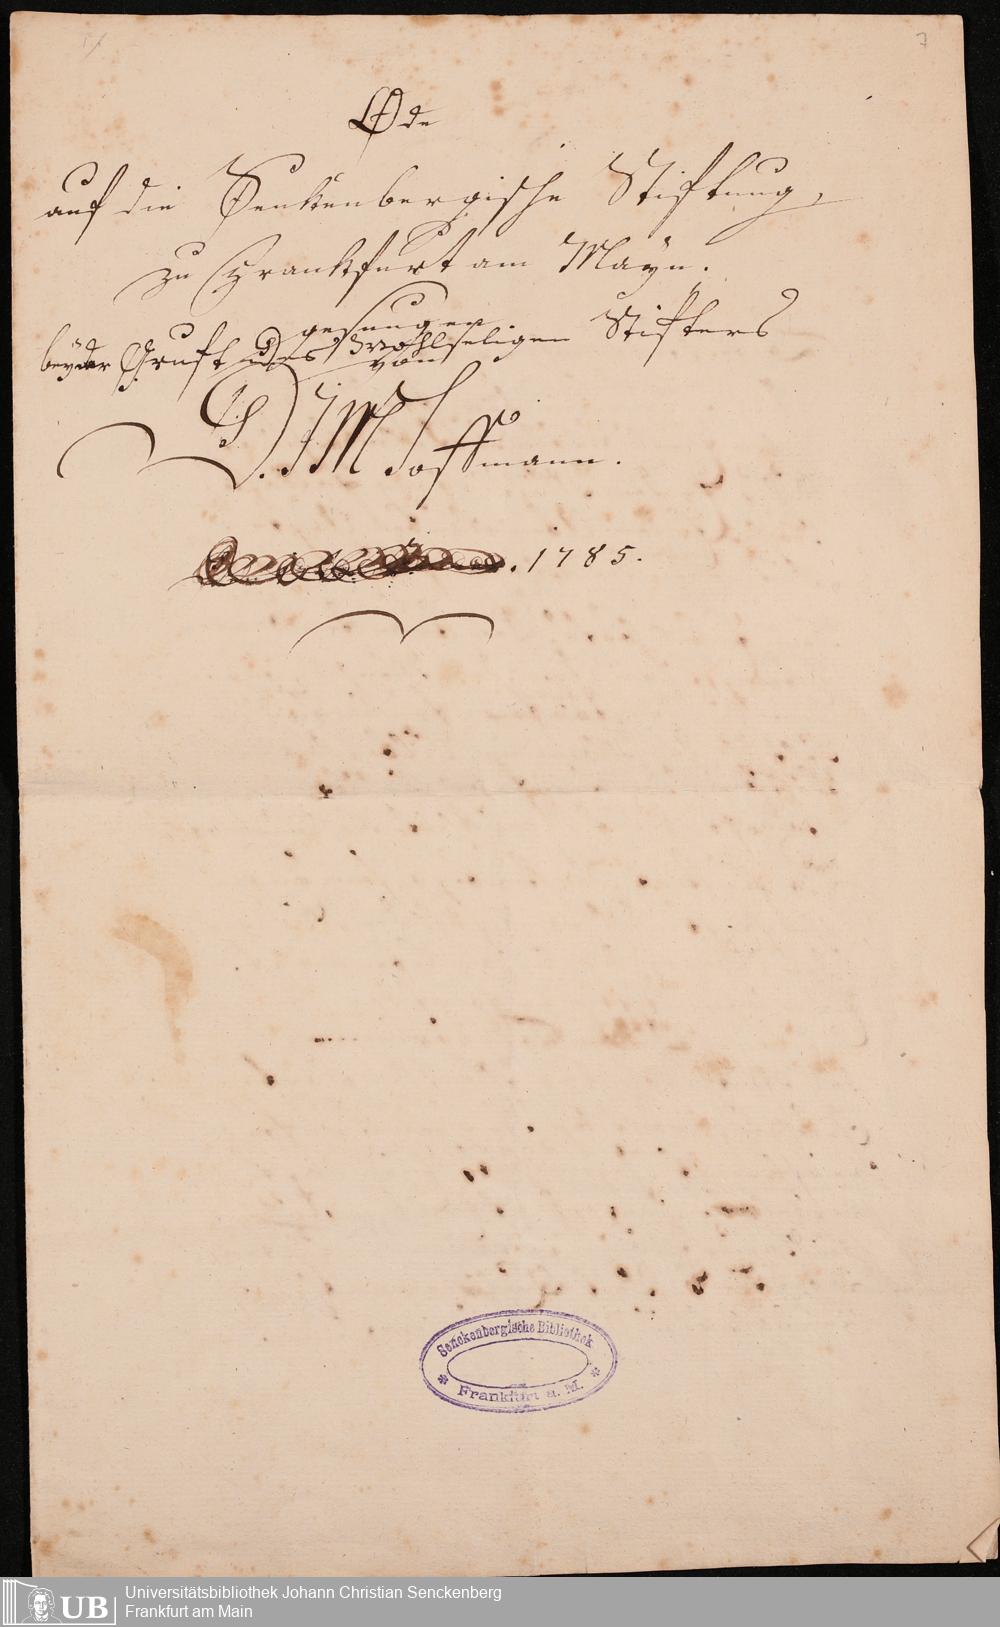 7
Ode
auf die Senkenbergische Stiftung,
zu Frankfurt am Mayn.
gesungen
bey der Gruft des Wohlseligen Stifters
von
D. J M Hoffmann.
. 1785.
Senckenbergische Bibliothek
* Frankfurt a. M. *
UB Universitätsbibliothek Johann Christian Senckenberg
Frankfurt am Main